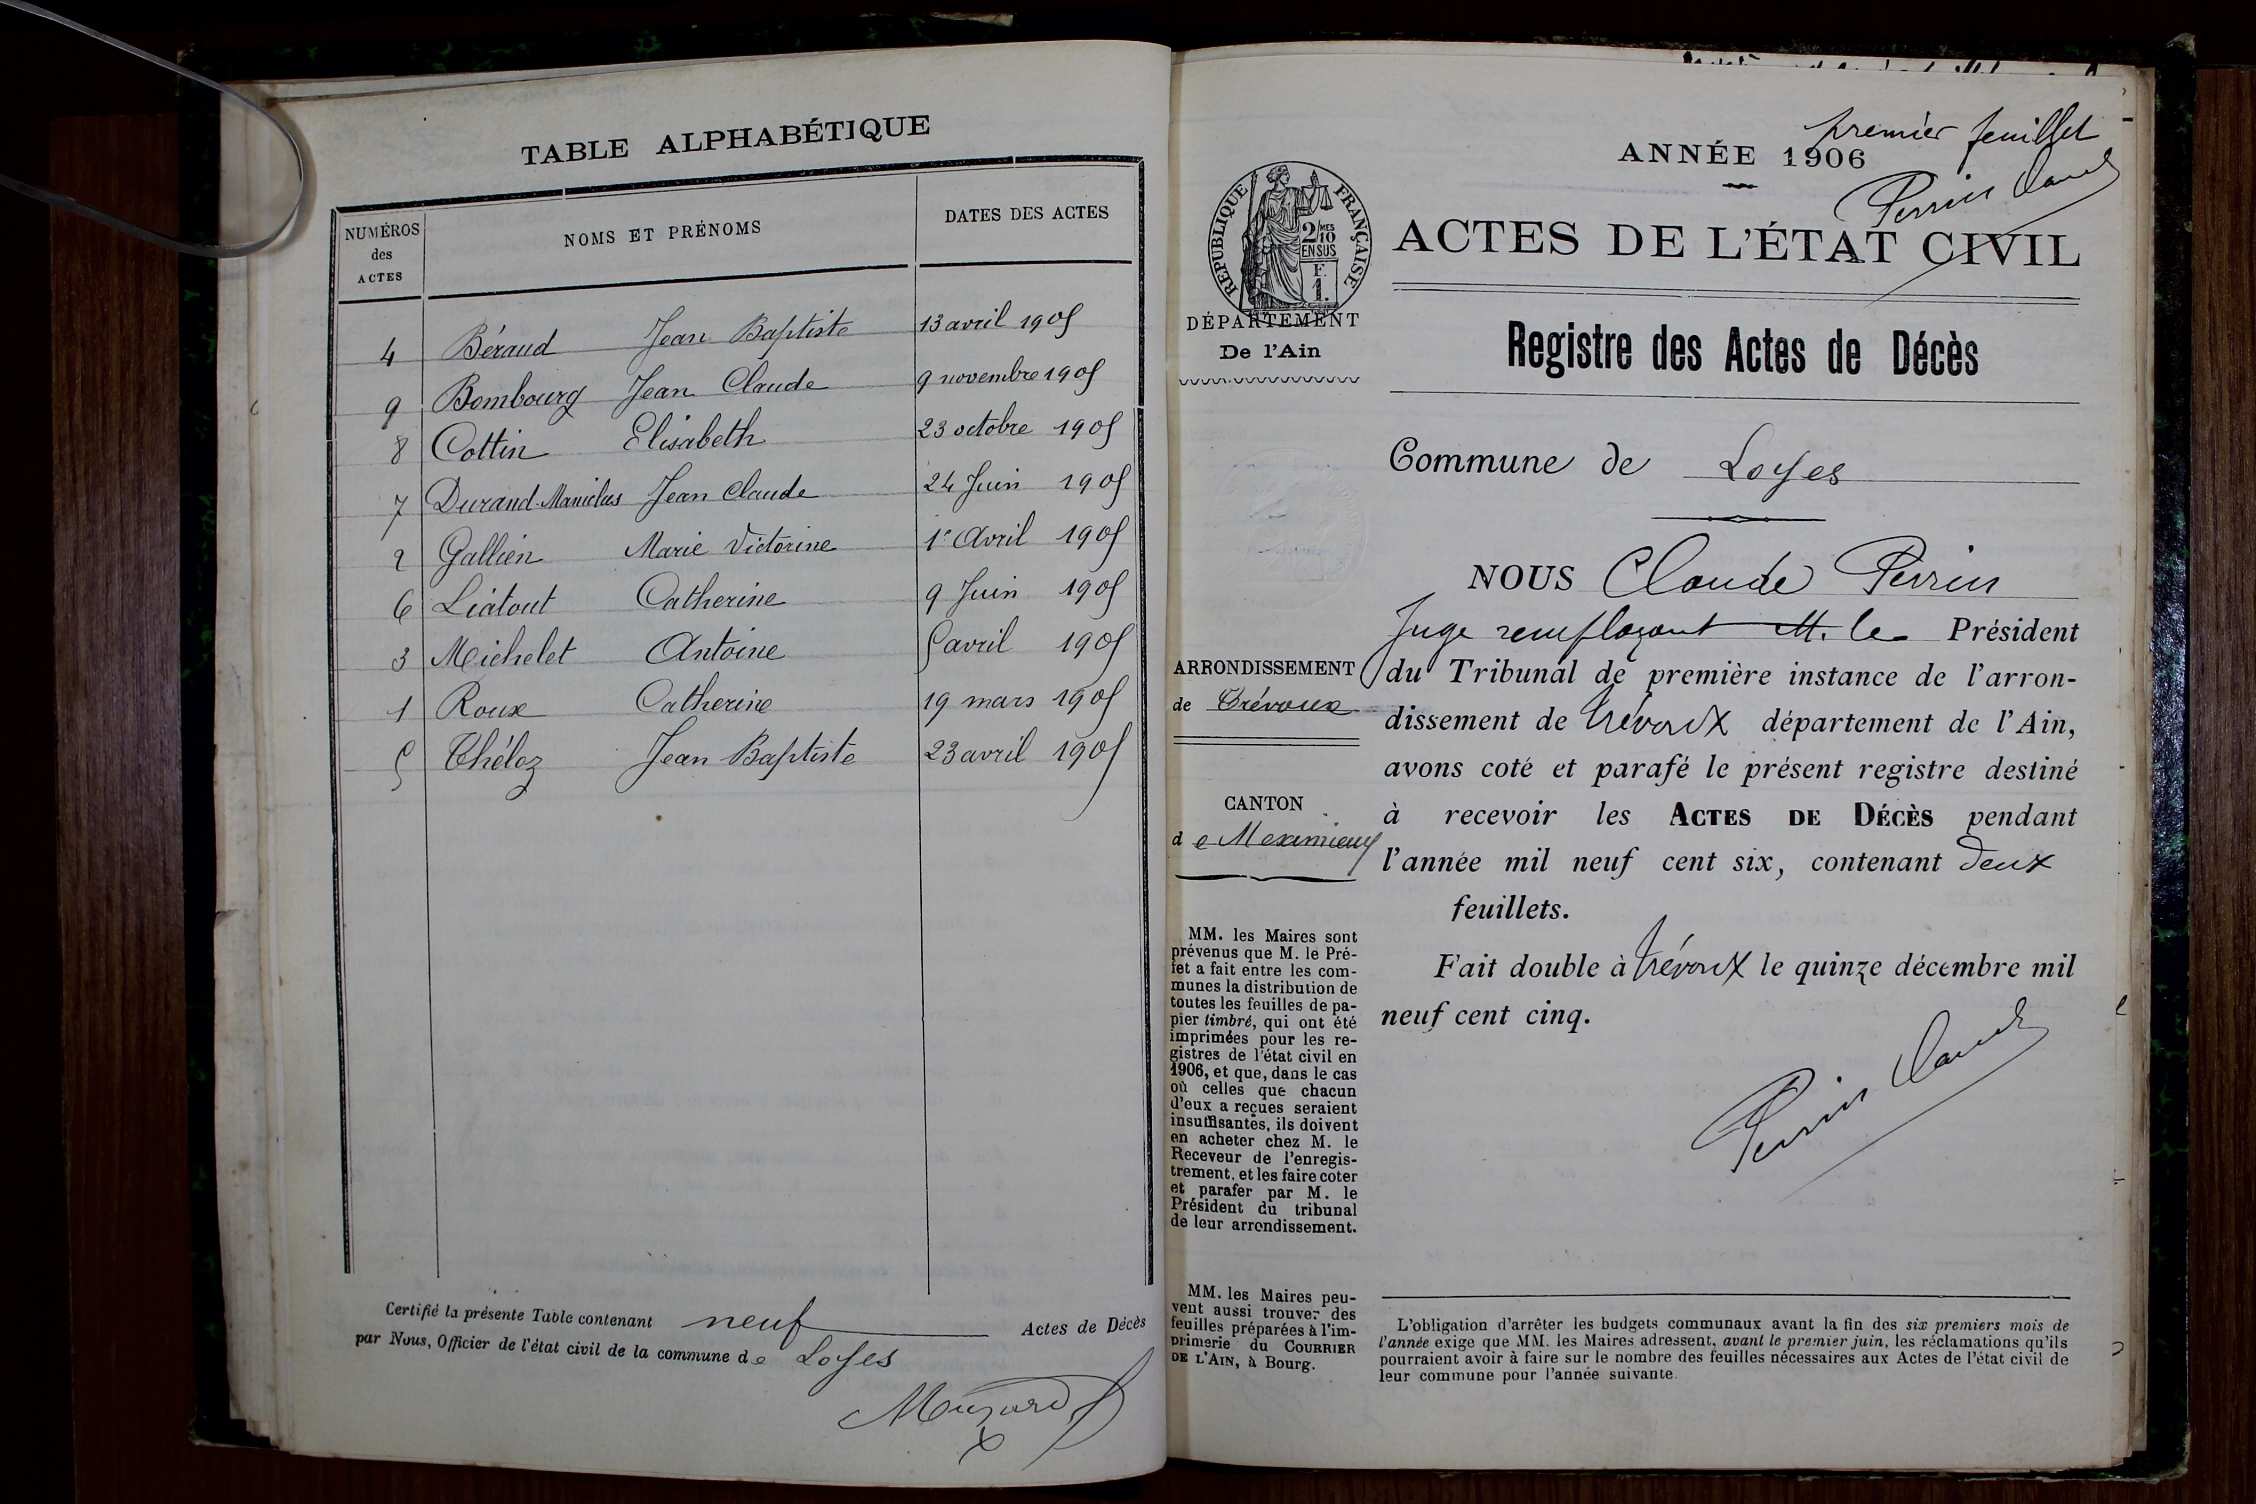 TABLE ALPHABÉTIQUE
NUMÉROS des ACTES NOMS ET PRÉNOMS DATES DES ACTES
4 Béraud Jean Baptiste 13 avril 1905
9 Bombourg Jean Claude 9 novembre 1905
8 Cottin Elisabeth 23 octobre 1905
7 Durand Jean Claude 24 Juin 1905
2 Gallien Marie Victorine 1er Avril 1905
6 Liatout Catherine 9 Juin 1905
3 Michelet Antoine 5 avril 1905
1 Roux Catherine 19 mars 1905
5 Théloz Jean Baptiste 23 avril 1905
Certifié la présente Table contenant neuf Actes de Décès
par Nous, Officier de l'état civil de la commune de Loyes
premier feuillet
ANNÉE 1906
Perrin Claude
RÉPUBLIQUE FRANÇAISE
2/10MES
EN SUS
F.
1.
ACTES DE L'ÉTAT CIVIL
DÉPARTEMENT
De l'Ain
Registre des Actes de Décès
Commune de Loyes
NOUS Claude Perrin
Juge remplaçant M. le Président
ARRONDISSEMENT
de Trévoux
du Tribunal de première instance de l'arron-
dissement de Trévoux département de l'Ain,
avons coté et parafé le présent registre destiné
CANTON
de Meximieux
à recevoir les ACTES DE DÉCÈS pendant
l'année mil neuf cent six, contenant deux
feuillets.
Fait double à Trévoux le quinze décembre mil
neuf cent cinq.
Perrin Claude
MM. les Maires sont
prévenus que M. le Pré-
fet a fait entre les com-
munes la distribution de
toutes les feuilles de pa-
pier timbré, qui ont été
imprimées pour les re-
gistres de l'état civil en
1906, et que, dans le cas
où celles que chacun
d'eux a reçues seraient
insuffisantes, ils doivent
en acheter chez M. le
Receveur de l'enregis-
trement, et les faire coter
et parafer par M. le
Président du tribunal
de leur arrondissement.
MM. les Maires peu-
vent aussi trouver des
feuilles préparées à l'im-
primerie du COURRIER
DE L'AIN, à Bourg.
L'obligation d'arrêter les budgets communaux avant la fin des six premiers mois de
l'année exige que MM. les Maires adressent, avant le premier juin, les réclamations qu'ils
pourraient avoir à faire sur le nombre des feuilles nécessaires aux Actes de l'état civil de
leur commune pour l'année suivante.